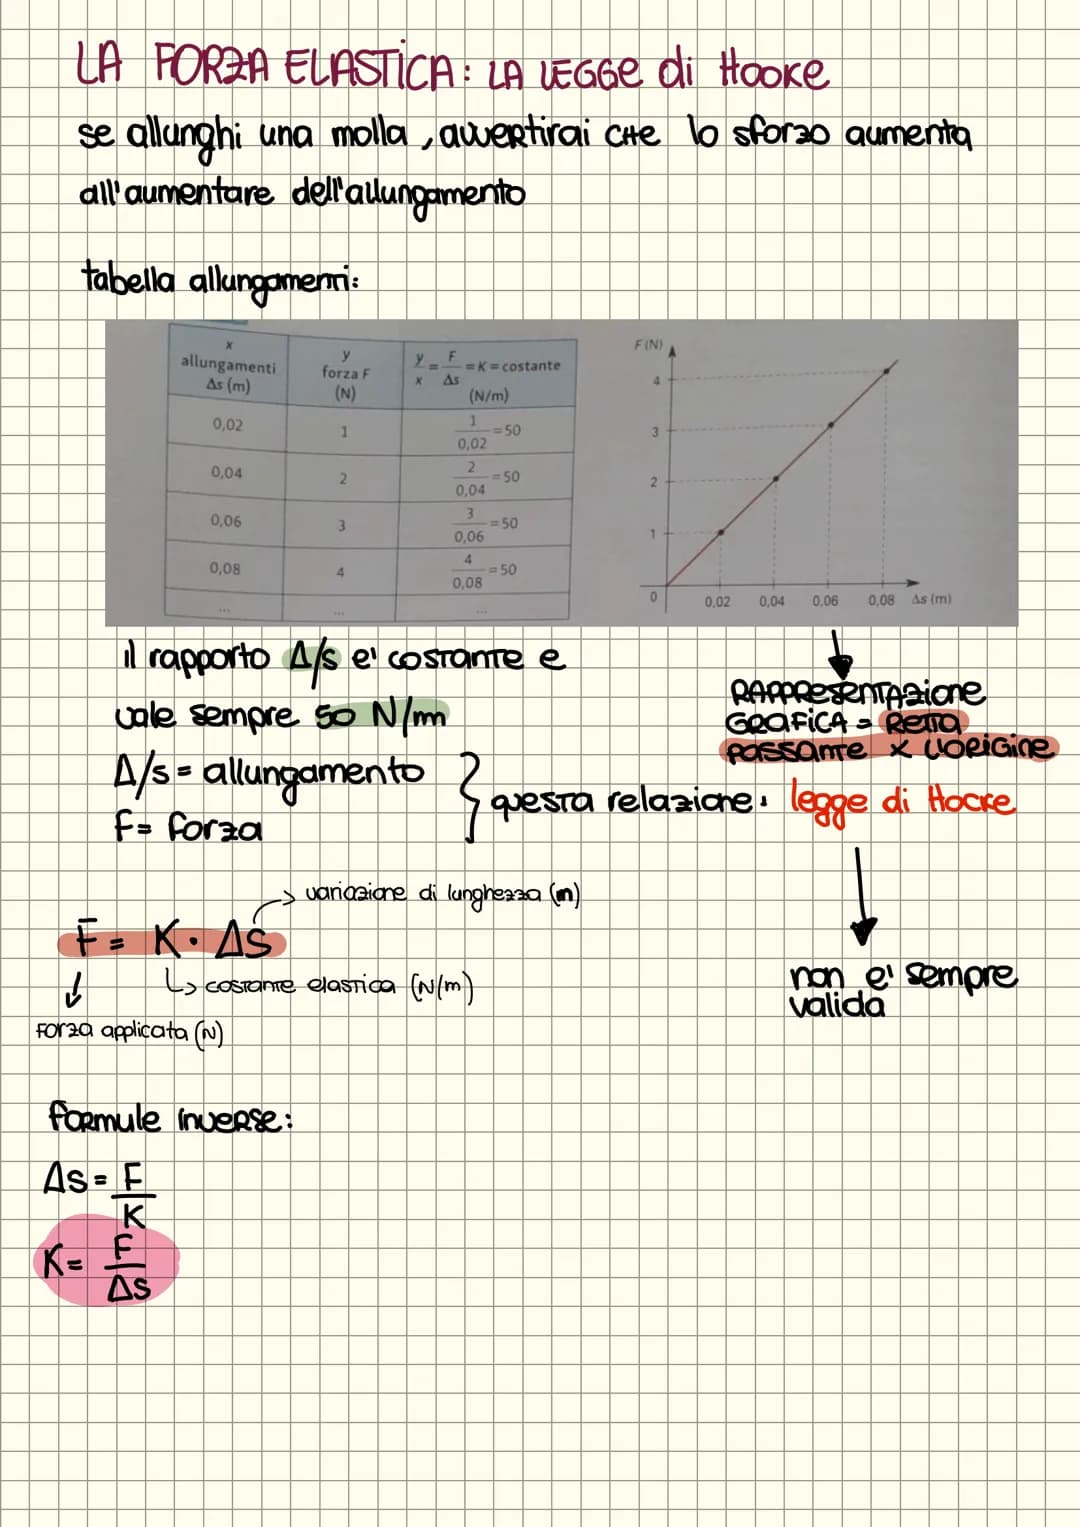 LA FORZA ELASTICA: LA LEGGE di Hooke
se allunghi una molla, avvertirai CHE lo sforzo aumenta
all'aumentare dell'allungamento
tabella allungamenti:
x allungamenti Δs (m)
y forza F (N)
y/x = F/Δs = K = costante (N/m)
0,02 1 1/0,02 = 50
0,04 2 2/0,04 = 50
0,06 3 3/0,06 = 50
0,08 4 4/0,08 = 50
... ... ...
F (N)
4
3
2
1
0 0,02 0,04 0,06 0,08 Δs (m)
il rapporto Δ/s e' costante e
vale sempre 50 N/m
RAPPRESENTAZIONE
GRAFICA = Retta
passante x l'origine
Δ/s = allungamento
F = forza
questa relazione: legge di Hooke
variazione di lunghezza (m)
F = K · Δs
costante elastica (N/m)
Forza applicata (N)
non e' sempre
valida
formule inverse:
Δs = F/K
K = F/Δs